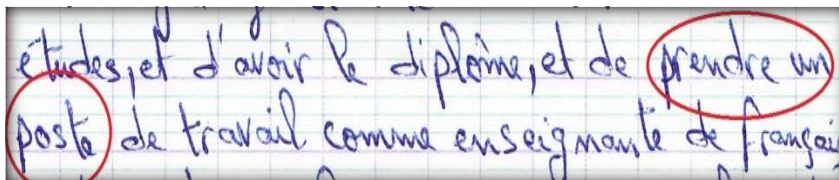 études, et d'avoir le diplôme, et de prendre un
poste de travail comme enseignante de français